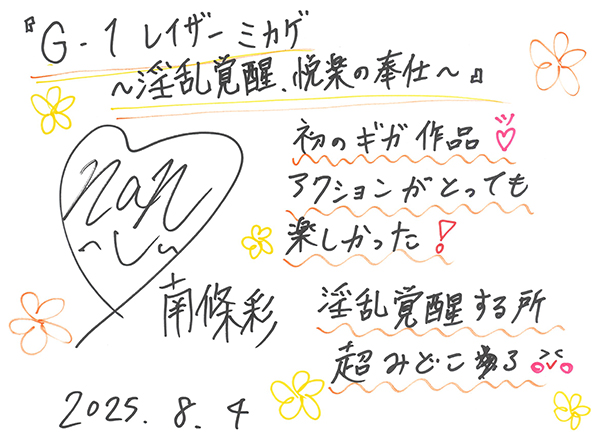 『G-1 レイザーミカゲ
～淫乱覚醒、悦楽の奉仕～』
初のギガ作品
アクションがとっても
楽しかった！
nan
南條彩
淫乱覚醒する所
超みどころ
2025.8.4